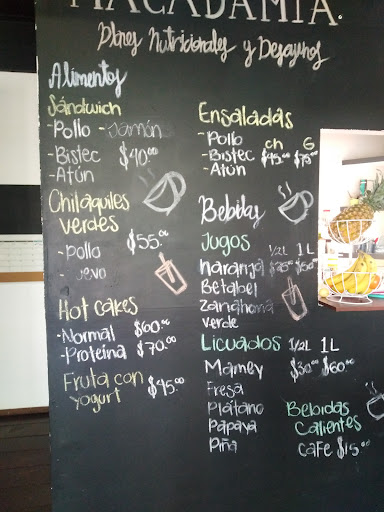 MACADAMIA.
Planes Nutricionales y Desayunos
Alimentos
Sándwich
- Pollo - Jamón
- Bistec $40.00
- Atún
Chilaquiles
verdes
- Pollo $55.00
- uevo
Hot cakes
- Normal $60.00
- Proteína $70.00
Fruta con
yogurt $45.00
Ensaladas
- Pollo ch G
- Bistec $45.00 $75.00
- Atún
Bebidas
Jugos 1/2L 1L
naranja $50
Betabel
Zanahoria
verde
Licuados 1/2L 1L
Mamey $30.00 $60.00
Fresa
Plátano
Papaya
Piña
Bebidas
Calientes
café $15.00